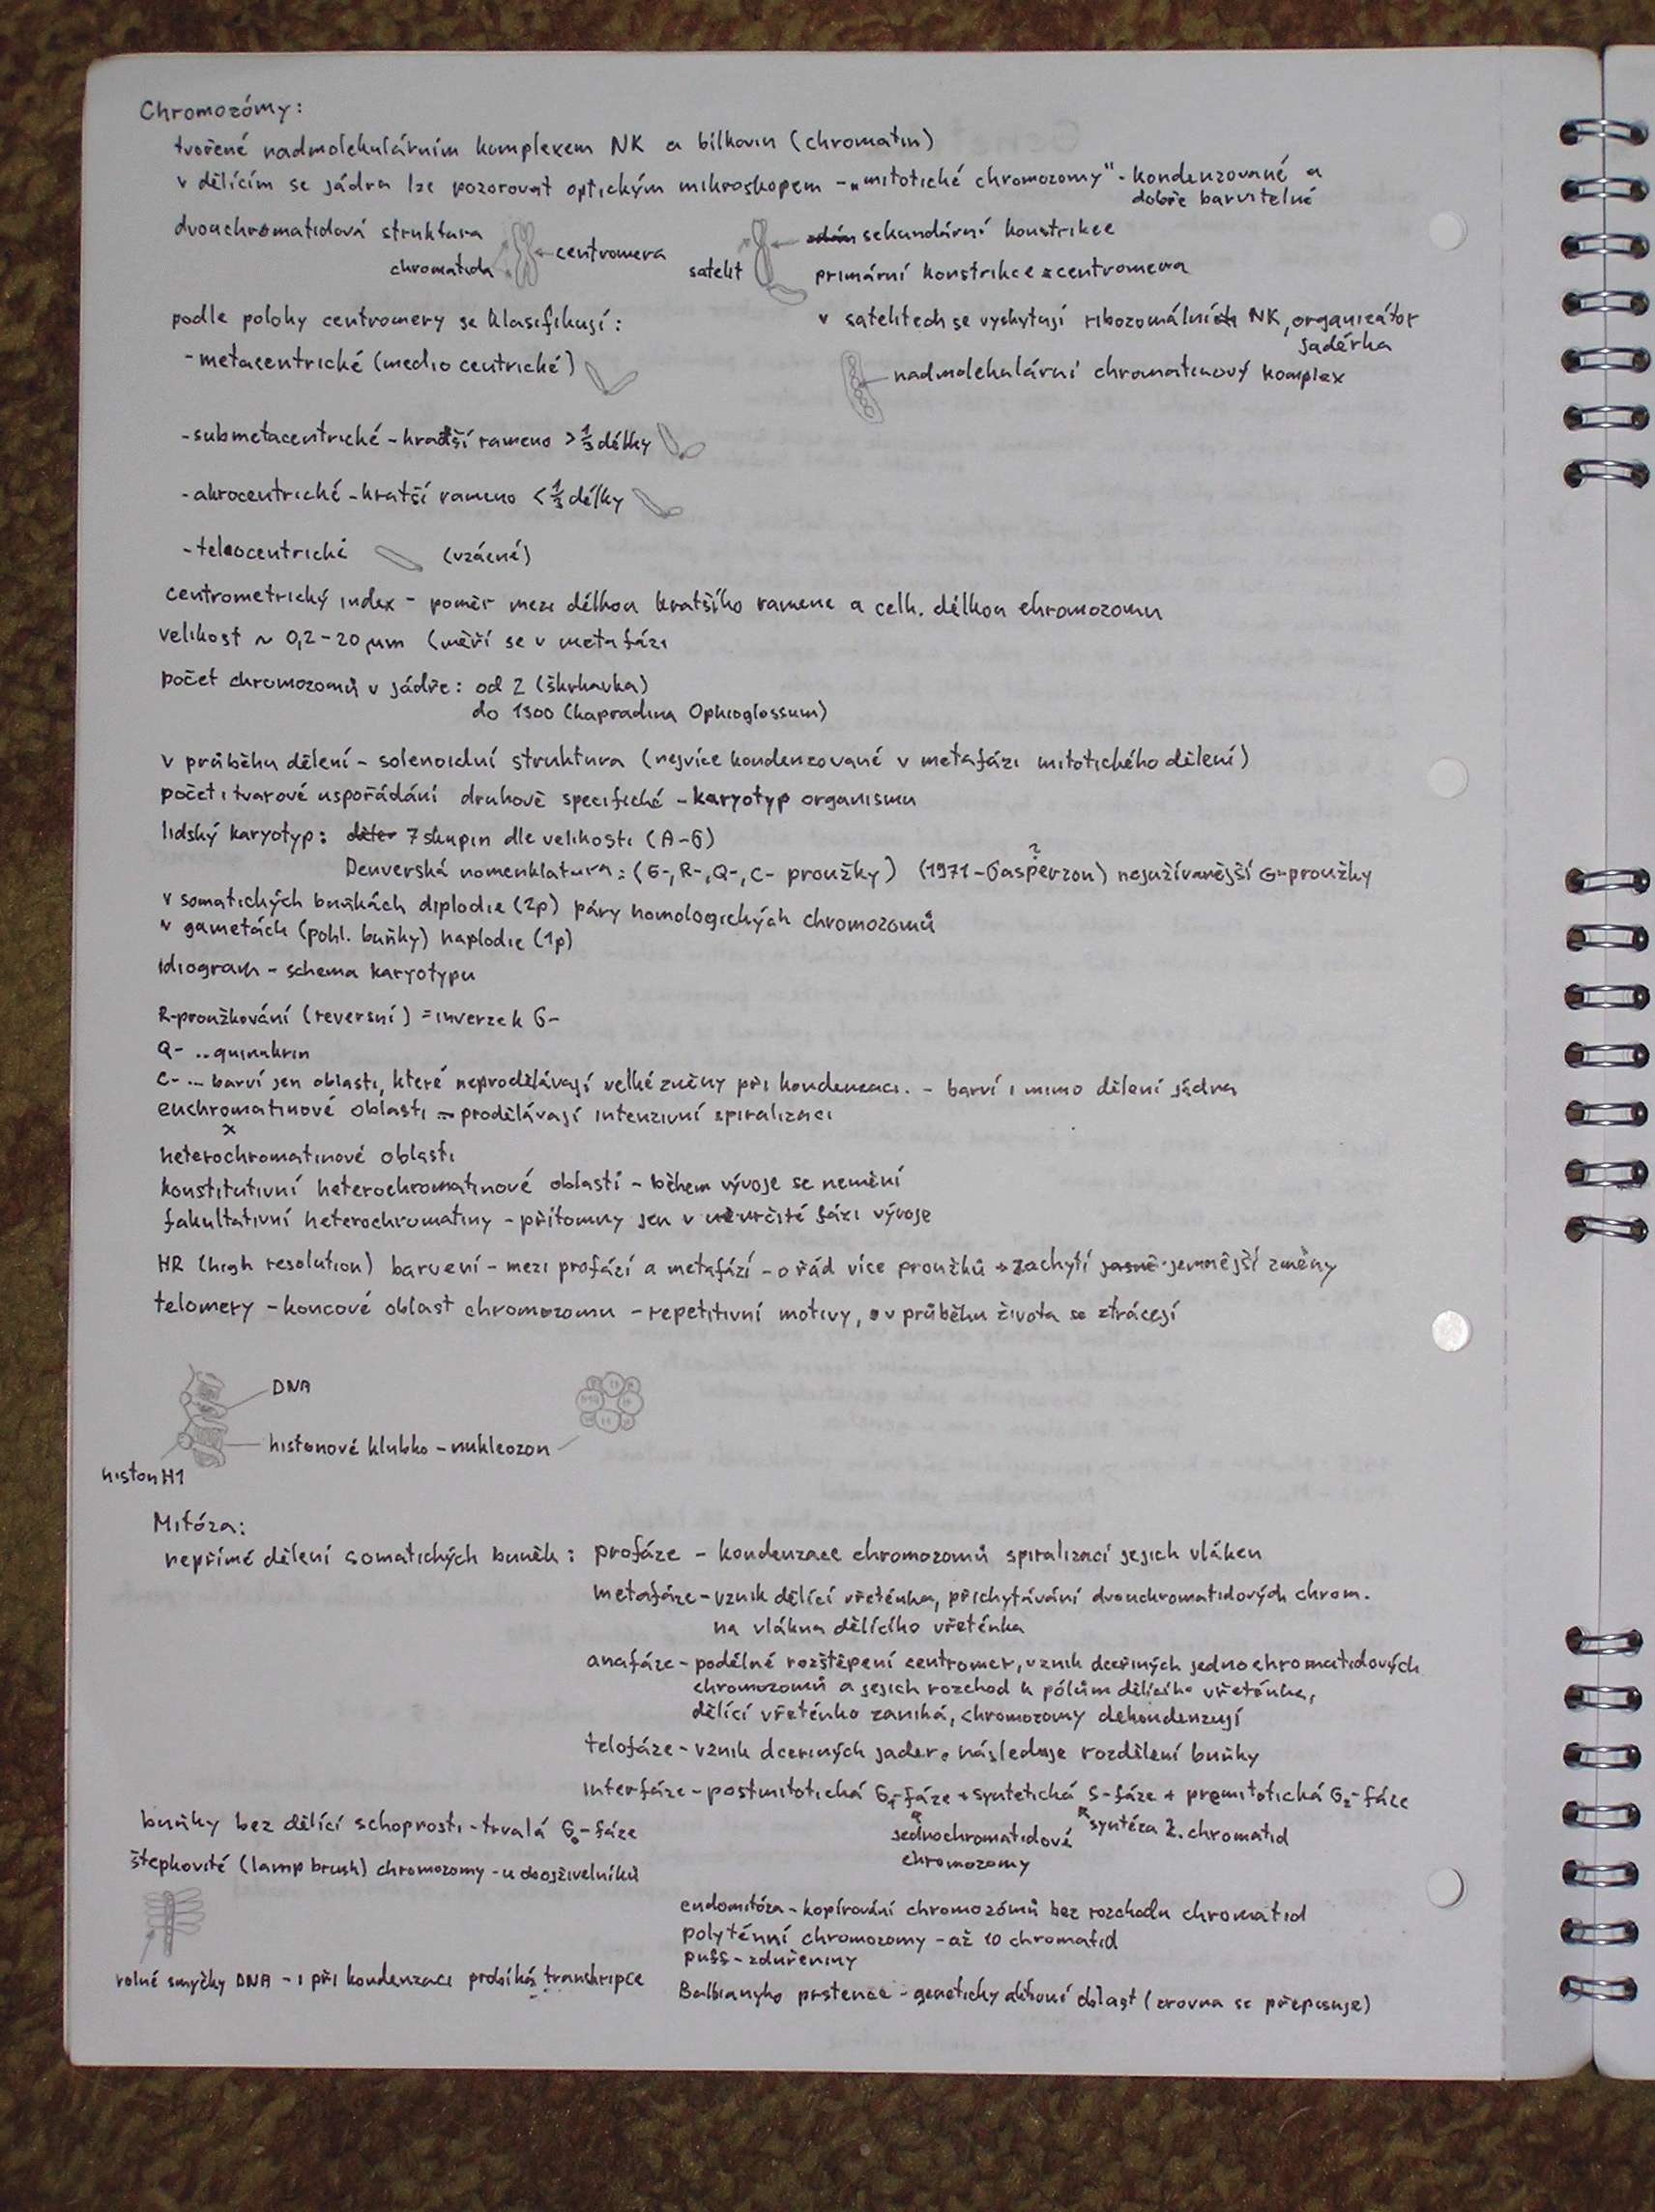 Chromozómy:
tvořené nadmolekulárním komplexem NK a bílkovin (chromatin)
v dělícím se jádru lze pozorovat optickým mikroskopem - „mitotické chromozomy" - kondenzované a
dobře barvitelné
dvouchromatidová struktura
centromera
chromatida
satelit
sekundární konstrikce
primární konstrikce = centromera
podle polohy centromery se klasifikují:
v satelitech se vyskytují ribozomální NK, organizátor
jadérka
- metacentrické (mediocentrické)
nadmolekulární chromatinový komplex
- submetacentrické - kratší rameno > 1/3 délky
- akrocentrické - kratší rameno < 1/3 délky
- telocentrické (vzácné)
centrometrický index - poměr mezi délkou kratšího ramene a celk. délkou chromozomu
velikost ~ 0,2-20 μm (měří se v metafázi
počet chromozomů v jádře: od 2 (škrkavka)
do 1300 (kapradina Ophioglossum)
v průběhu dělení - solenoidní struktura (nejvíce kondenzované v metafázi mitotického dělení)
počet i tvarové uspořádání druhově specifické - karyotyp organismu
lidský karyotyp: 7 skupin dle velikosti (A-G)
?
Denverská nomenklatura: (G-, R-, Q-, C- proužky) (1971 - Gasperzon) nejužívanější G-proužky
v somatických buňkách diplodie (2p) páry homologických chromozomů
v gametách (pohl. buňky) haplodie (1p)
idiogram - schema karyotypu
R-proužkování (reversní) = inverze k G-
Q- .. quinakrin
C- ... barví jen oblasti, které neprodělávají velké změny při kondenzaci. - barví i mimo dělení jádra
euchromatinové oblasti - prodělávají intenzivní spiralizaci
x
heterochromatinové oblasti
konstitutivní heterochromatinové oblasti - během vývoje se nemění
fakultativní heterochromatiny - přítomny jen v určité fázi vývoje
HR (high resolution) barvení - mezi profází a metafází - o řád více proužků → zachytí jemnější změny
telomery - koncové oblast chromozomu - repetitivní motivy, v průběhu života se ztrácejí
DNA
histonové klubko - nukleozon
histon H1
Mitóza:
nepřímé dělení somatických buněk: profáze - kondenzace chromozomů spiralizací jejich vláken
metafáze - vznik dělící vřeténka, přichytávání dvouchromatidových chrom.
na vlákna dělícího vřeténka
anafáze - podélné rozštěpení centromer, vznik dceřiných jednochromatidových
chromozomů a jejich rozchod k pólům dělícího vřeténka,
dělící vřeténko zaniká, chromozomy dekondenzují
telofáze - vznik dceriných jader. následuje rozdělení buňky
interfáze - postmitotická G1-fáze + syntetická S-fáze + premitotická G2-fáze
jednochromatidové
chromozomy
syntéza 2. chromatid
buňky bez dělící schoprosti - trvalá G0-fáze
štepkovité (lamp brush) chromozomy - u obojživelníků
volné smyčky DNA - i při kondenzaci probíhá transkripce
endomitóza - kopírování chromozómů bez rozchodu chromatid
polyténní chromozomy - až 10 chromatid
puff - zduřeniny
Balbianyho prstence - geneticky aktivní oblast (zrovna se přepisuje)